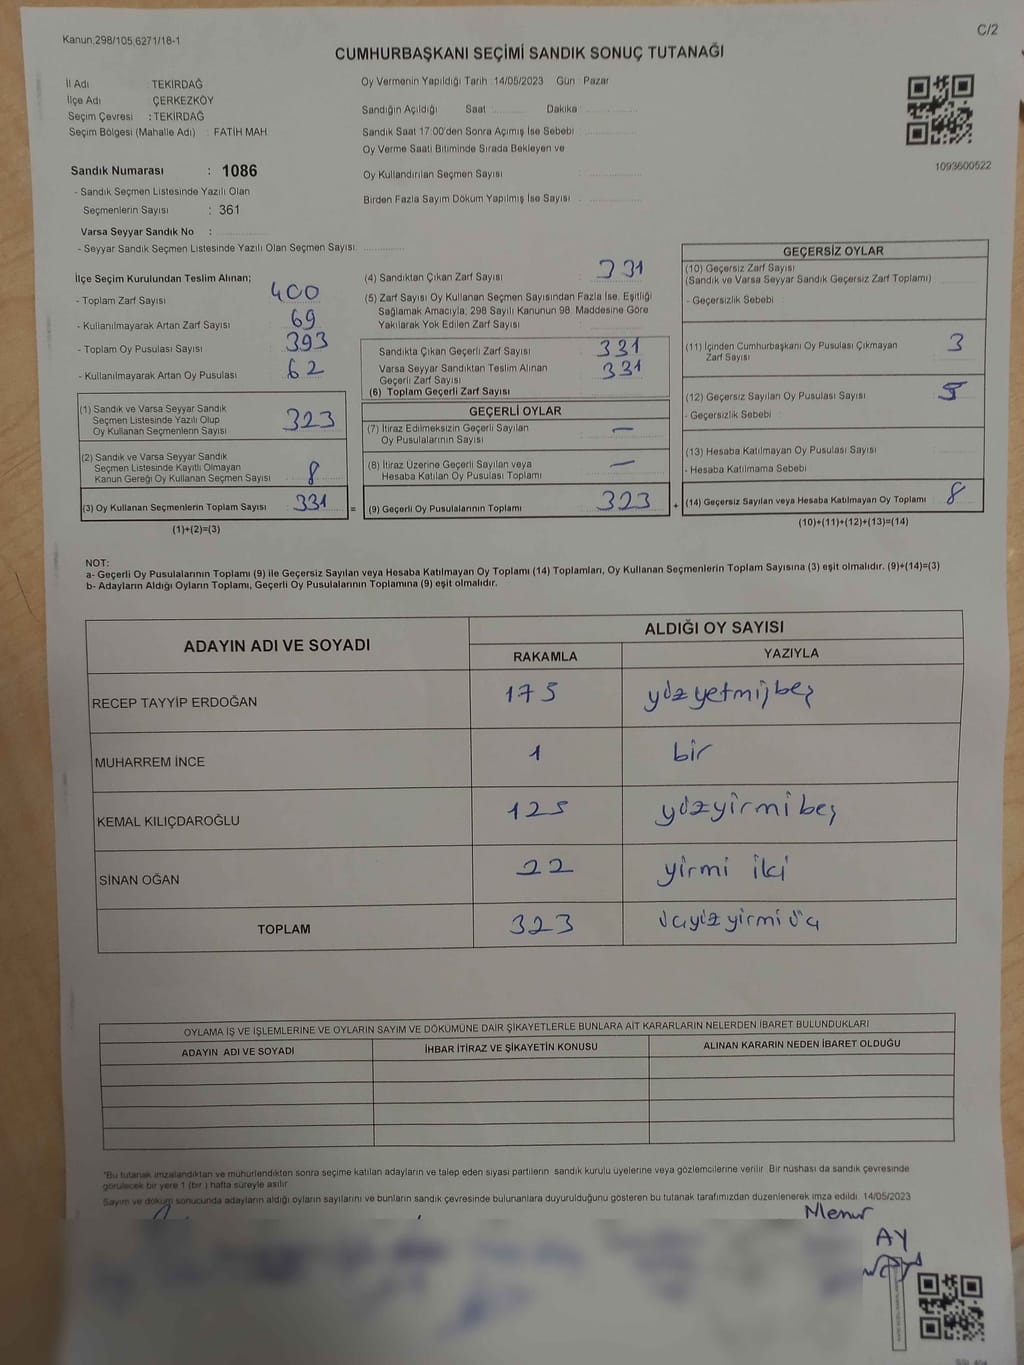 Kanun.298/105,6271/18-1
C/2
CUMHURBAŞKANI SEÇİMİ SANDIK SONUÇ TUTANAĞI
İl Adı TEKİRDAĞ
İlçe Adı ÇERKEZKÖY
Seçim Çevresi : TEKİRDAĞ
Seçim Bölgesi (Mahalle Adı) : FATİH MAH.
Oy Vermenin Yapıldığı Tarih :14/05/2023 Gün Pazar
Sandığın Açıldığı Saat Dakika
Sandık Saat 17:00'den Sonra Açımış İse Sebebi
Oy Verme Saati Bitiminde Sırada Bekleyen ve
Oy Kullandırılan Seçmen Sayısı
Birden Fazla Sayım Döküm Yapılmış İse Sayısı
1093600522
Sandık Numarası : 1086
- Sandık Seçmen Listesinde Yazılı Olan
Seçmenlerin Sayısı : 361
Varsa Seyyar Sandık No :
- Seyyar Sandık Seçmen Listesinde Yazılı Olan Seçmen Sayısı:
İlçe Seçim Kurulundan Teslim Alınan;
- Toplam Zarf Sayısı 400
- Kullanılmayarak Artan Zarf Sayısı 69
- Toplam Oy Pusulası Sayısı 393
- Kullanılmayarak Artan Oy Pusulası 62
(1) Sandık ve Varsa Seyyar Sandık
Seçmen Listesinde Yazılı Olup
Oy Kullanan Seçmenlerin Sayısı 323
(2) Sandık ve Varsa Seyyar Sandık
Seçmen Listesinde Kayıtlı Olmayan
Kanun Gereği Oy Kullanan Seçmen Sayısı 8
(3) Oy Kullanan Seçmenlerin Toplam Sayısı 331 =
(1)+(2)=(3)
(4) Sandıktan Çıkan Zarf Sayısı 331
(5) Zarf Sayısı Oy Kullanan Seçmen Sayısından Fazla İse, Eşitliği
Sağlamak Amacıyla; 298 Sayılı Kanunun 98. Maddesine Göre
Yakılarak Yok Edilen Zarf Sayısı
Sandıkta Çıkan Geçerli Zarf Sayısı 331
Varsa Seyyar Sandıktan Teslim Alınan
Geçerli Zarf Sayısı 331
(6) Toplam Geçerli Zarf Sayısı
GEÇERLİ OYLAR
(7) İtiraz Edilmeksizin Geçerli Sayılan
Oy Pusulalarının Sayısı —
(8) İtiraz Üzerine Geçerli Sayılan veya
Hesaba Katılan Oy Pusulası Toplamı —
(9) Geçerli Oy Pusulalarının Toplamı 323 +
GEÇERSİZ OYLAR
(10) Geçersiz Zarf Sayısı
(Sandık ve Varsa Seyyar Sandık Geçersiz Zarf Toplamı)
- Geçersizlik Sebebi
(11) İçinden Cumhurbaşkanı Oy Pusulası Çıkmayan
Zarf Sayısı 3
(12) Geçersiz Sayılan Oy Pusulası Sayısı 5
- Geçersizlik Sebebi
(13) Hesaba Katılmayan Oy Pusulası Sayısı
- Hesaba Katılmama Sebebi
(14) Geçersiz Sayılan veya Hesaba Katılmayan Oy Toplamı 8
(10)+(11)+(12)+(13)=(14)
NOT:
a- Geçerli Oy Pusulalarının Toplamı (9) ile Geçersiz Sayılan veya Hesaba Katılmayan Oy Toplamı (14) Toplamları, Oy Kullanan Seçmenlerin Toplam Sayısına (3) eşit olmalıdır. (9)+(14)=(3)
b- Adayların Aldığı Oyların Toplamı, Geçerli Oy Pusulalarının Toplamına (9) eşit olmalıdır.
ADAYIN ADI VE SOYADI ALDIĞI OY SAYISI
RAKAMLA YAZIYLA
RECEP TAYYİP ERDOĞAN 175 yüzyetmişbeş
MUHARREM İNCE 1 bir
KEMAL KILIÇDAROĞLU 125 yüzyirmi beş
SİNAN OĞAN 22 yirmi iki
TOPLAM 323 üçyüz yirmi üç
OYLAMA İŞ VE İŞLEMLERİNE VE OYLARIN SAYIM VE DÖKÜMÜNE DAİR ŞİKAYETLERLE BUNLARA AİT KARARLARIN NELERDEN İBARET BULUNDUKLARI
ADAYIN ADI VE SOYADI İHBAR İTİRAZ VE ŞİKAYETİN KONUSU ALINAN KARARIN NEDEN İBARET OLDUĞU
*Bu tutanak imzalandıktan ve mühürlendikten sonra seçime katılan adayların ve talep eden siyasi partilerin sandık kurulu üyelerine veya gözlemcilerine verilir. Bir nüshası da sandık çevresinde
görülecek bir yere 1 (bir ) hafta süreyle asılır.
Sayım ve döküm sonucunda adayların aldığı oyların sayılarını ve bunların sandık çevresinde bulunanlara duyurulduğunu gösteren bu tutanak tarafımızdan düzenlenerek imza edildi. 14/05/2023
Memur
AY